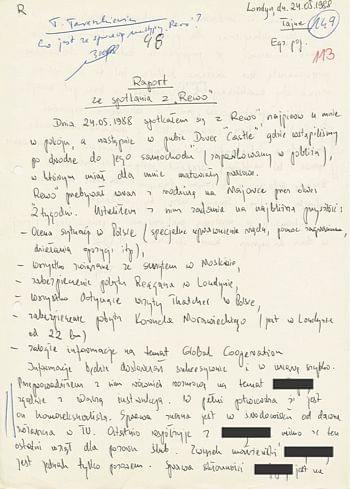 R
Londyn, dn. 24.05.1988
Tajne
149
Egz. poj.
113
T. Tareszkiewicz
Co jest ze sprawą "Rewo"?
46
Raport
ze spotkania z „Rewo”
Dnia 24.05.1988 spotkałem się z "Rewo" najpierw u mnie
w pokoju, a następnie w pubie Dover "Castle" gdzie wstąpiliśmy
po drodze do jego samochodu (zaparkowany w pobliżu),
w którym miał dla mnie materiały prasowe.
"Rewo" przebywał wraz z rodziną na Majorce przez okres
2 tygodni. Ustaliłem z nim zadania na najbliższą przyszłość:
- Ocena sytuacji w Polsce (specjalne uprawnienia rządu, pomoc zagraniczna,
działania opozycji itp.),
- wszystko związane ze szczytem w Moskwie,
- zabezpieczenie pobytu Reagana w Londynie,
- wszystko dotyczące wizyty Thatcher w Polsce,
- zabezpieczenie pobytu Kornela Morawieckiego (jest w Londynie
od 22 bm)
- zdobycie informacji na temat Global Cooperation
Informacje będzie dostarczał sukcesywnie i w miarę szybko.
Przeprowadziłem z nim również rozmowę na temat
zgodnie z Waszą instrukcją. W pełni potwierdza się, iż jest
on homoseksualistą. Sprawa znana jest w środowisku od dawna
w TV. Ostatnio współżyje z mimo że ten
ostatni wziął dla pozoru ślub. Związek małżeński
jest jednak tylko pozorem. Sprawa skłonności jest na